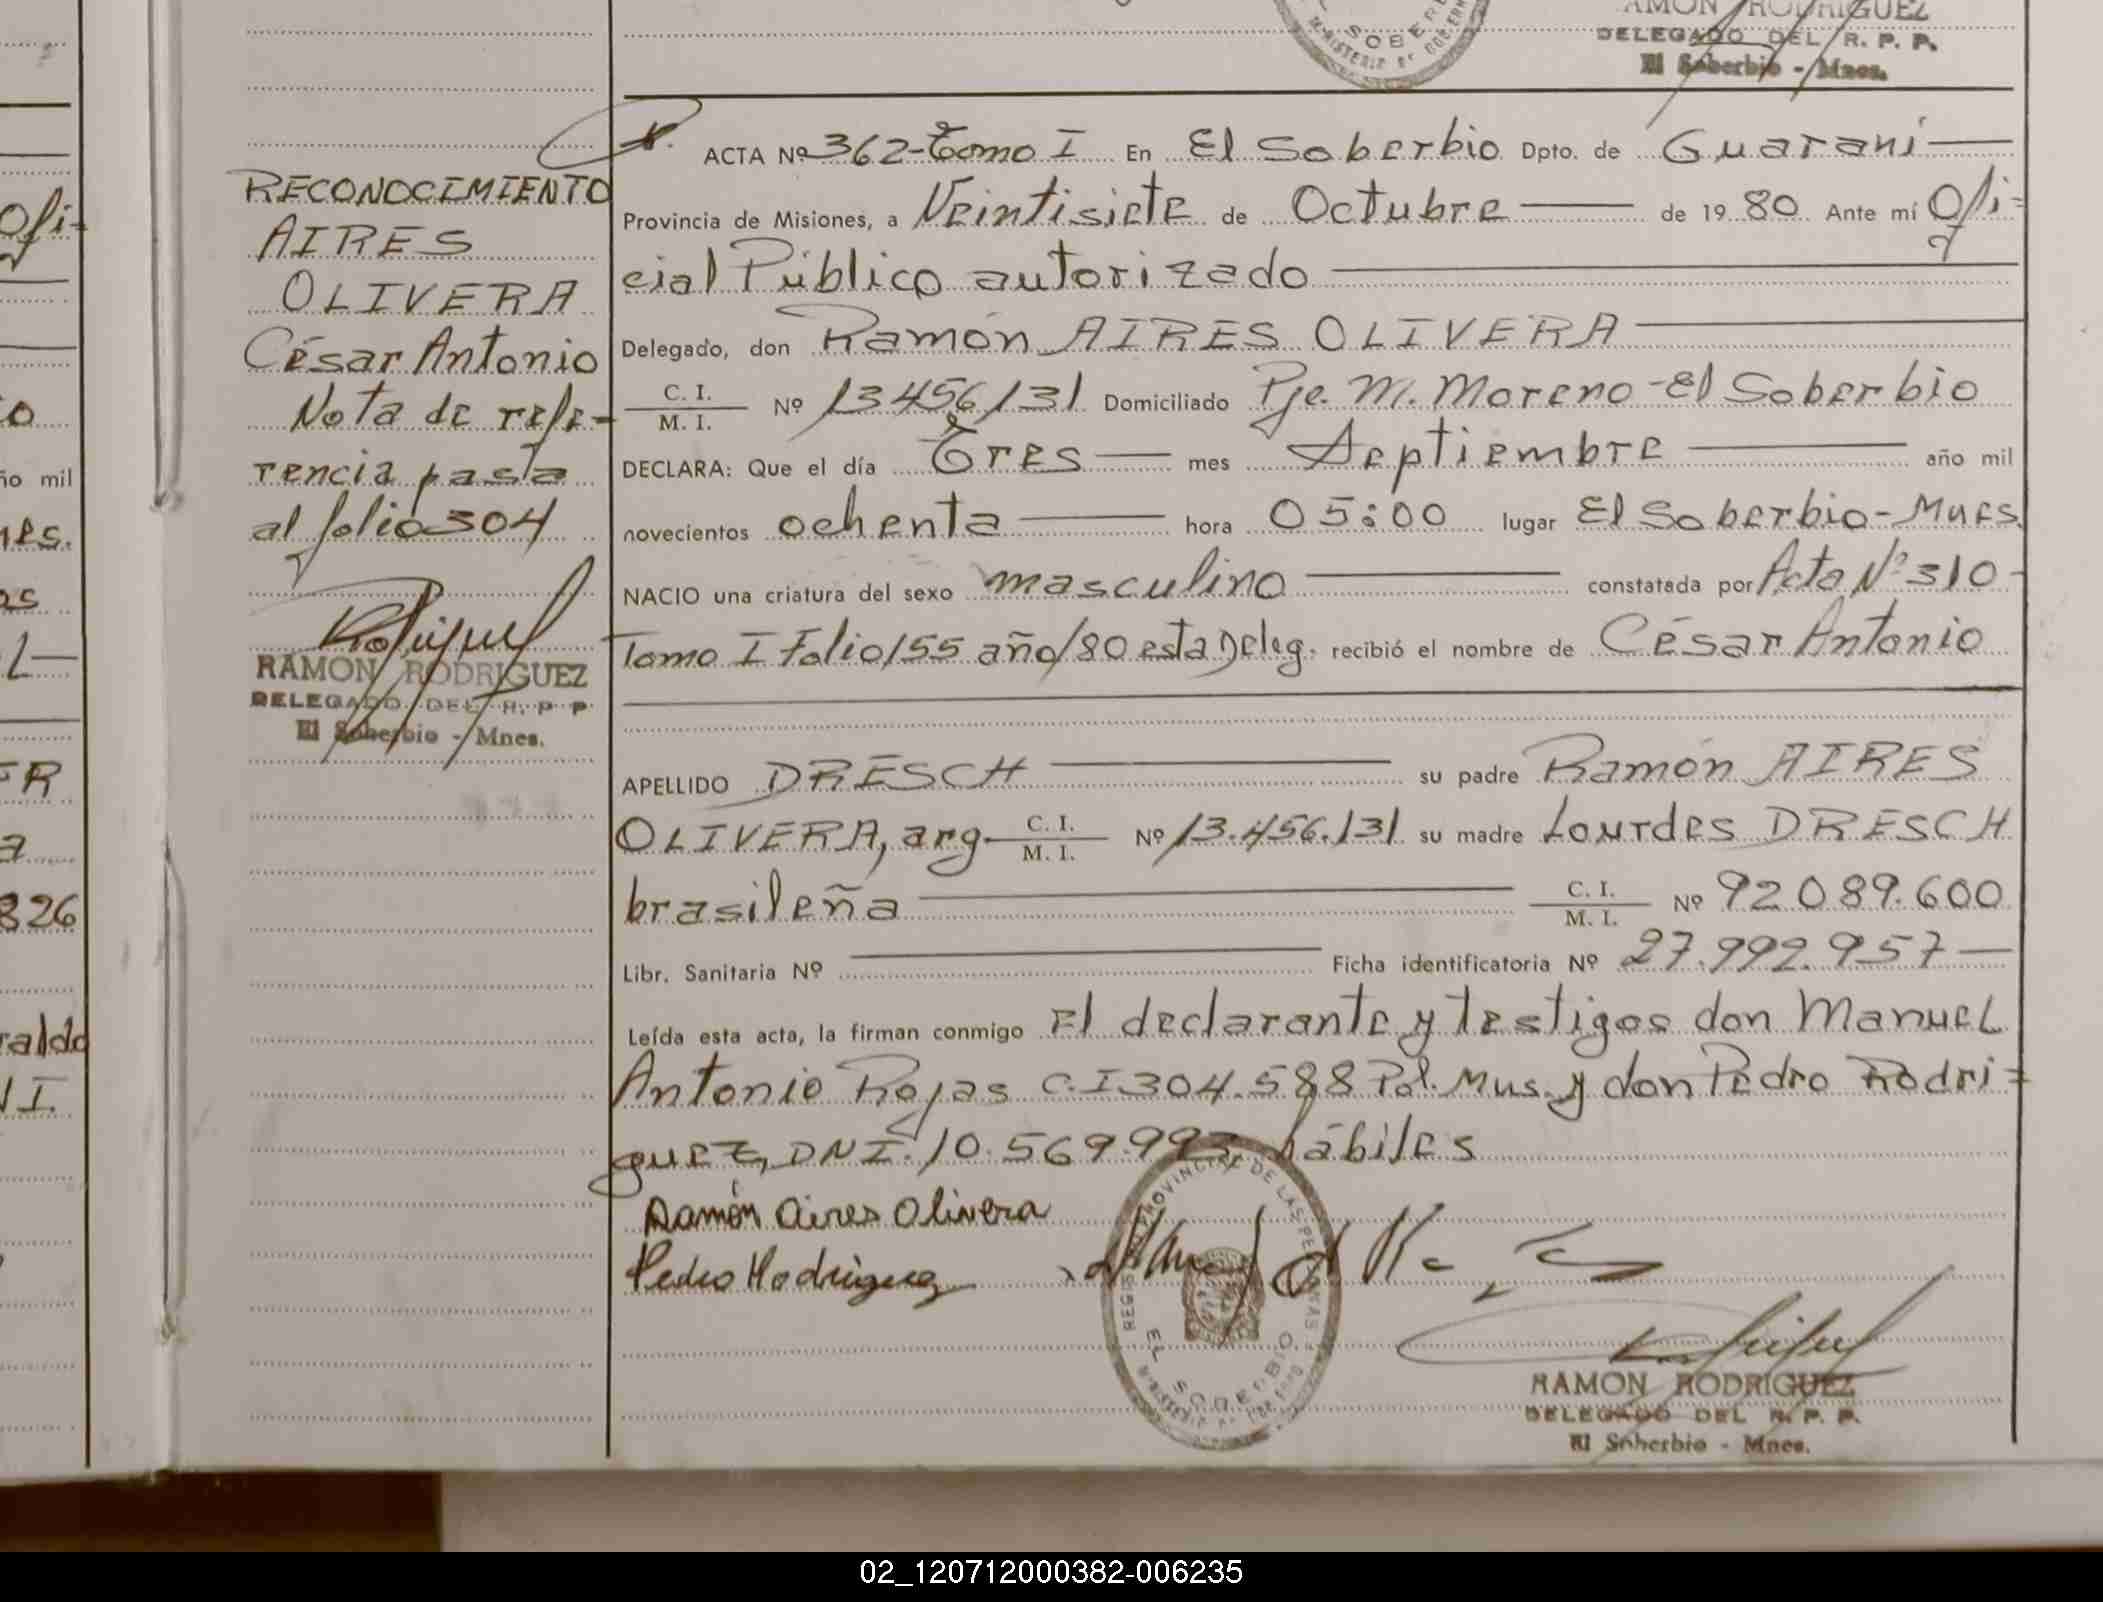 RAMON RODRIGUEZ
DELEGADO DEL R. P. P.
El Soberbio - Mnes.
RECONOCIMIENTO
AIRES
OLIVERA
César Antonio
Nota de refe-
rencia pasta
al folio 304
RAMON RODRIGUEZ
DELEGADO DEL R. P. P.
El Soberbio - Mnes.
ACTA Nº 362-Tomo I En El Soberbio Dpto. de Guaraní
Provincia de Misiones, a Veintisiete de Octubre de 19 80 Ante mí Ofi-
cial Público autorizado
Delegado, don Ramón AIRES OLIVERA
C. I. / M. I. Nº 13456131 Domiciliado Pje. M. Moreno-El Soberbio
DECLARA: Que el día Tres mes Septiembre año mil
novecientos ochenta hora 05:00 lugar El Soberbio-Mnes.
NACIO una criatura del sexo masculino constatada por Acta Nº 310-
Tomo I Folio 155 año/80 esta Deleg. recibió el nombre de César Antonio
APELLIDO DRESCH su padre Ramón AIRES
OLIVERA, arg. C. I. / M. I. Nº 13.456.131 su madre Lourdes DRESCH
brasileña C. I. / M. I. Nº 92089.600
Libr. Sanitaria Nº Ficha identificatoria Nº 27.992.957
Leída esta acta, la firman conmigo El declarante y testigos don Manuel
Antonio Rojas C.I 304.588 Pol. Mns. y don Pedro Rodri-
guez, DNI. 10.569.993, hábiles
Ramón Aires Olivera
Pedro Rodriguez
EL SOBERBIO
RAMON RODRIGUEZ
DELEGADO DEL R. P. P.
El Soberbio - Mnes.
02_120712000382-006235